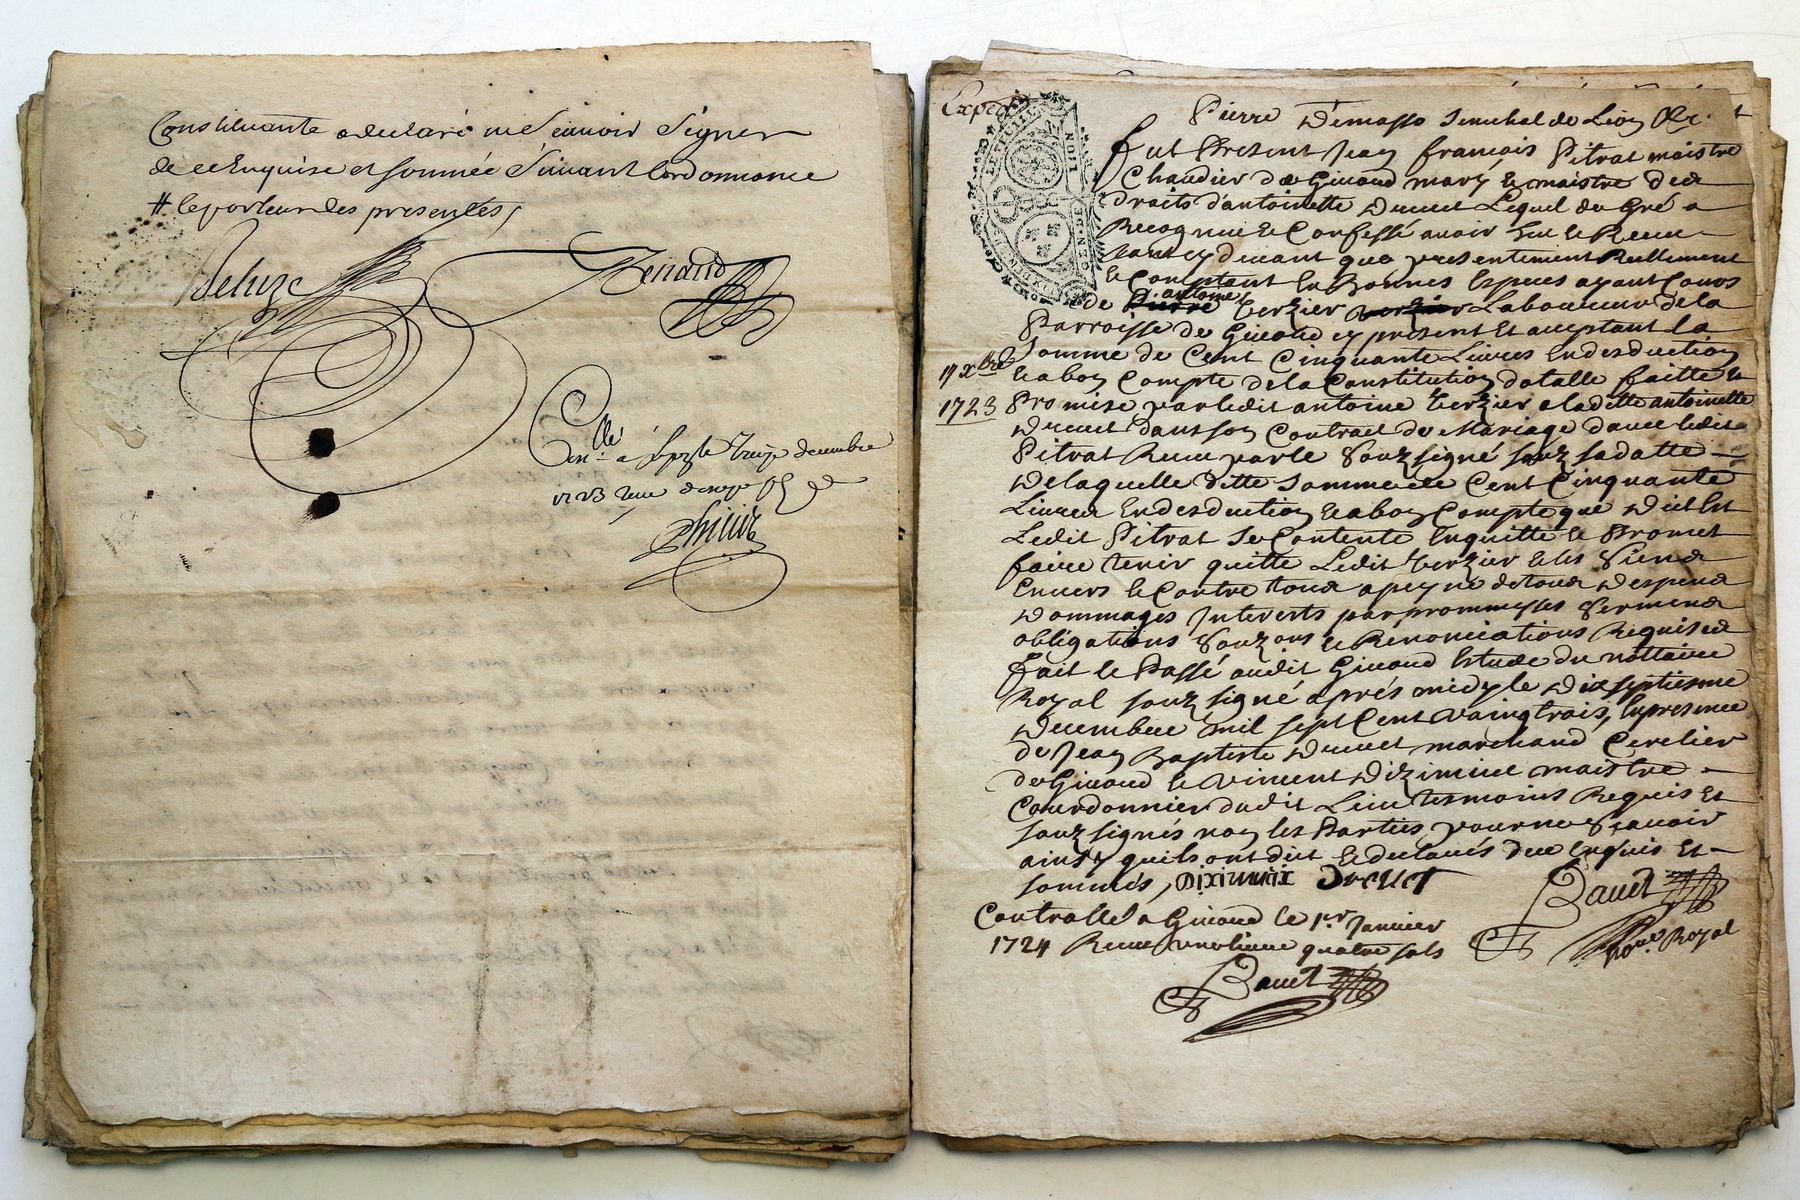 Constituante a declaré ne sçauoir signer
de ce Enquise et sommée suiuant lordonnance
# le porteur des presentes,
Deluze Renaud
Cllé
a treize decembre
1723
Expedié
Pierre Demasso Senechal de Lion &c.
fut Present Jean francois Pitrat maistre
Chaudier de Giuord mary & maistre des
droits d'antoinette Drevet Lequel de Gré a
Recognu & Confessé auoir Eu & Receu
tant cy deuant que presentiment Reellement
& Comptant En Bonnes Especes ayant Cours
de Pierre antoine terzier terzier Laboureur de la
Parroisse de Giuord cy present Et acceptant La
17 Xbre
1723
Somme de Cent Cinquante Liures En desduction
& a bon Compte de la Constitution dotalle faitte &
Promise par ledit antoine terzier a laditte antoinette
Drevet dans son Contract de Mariage dauec ledit
Pitrat Receu par le Souz signé souz sa datte
De laquelle ditte Somme de Cent Cinquante
Liures En desduction & a bon Compte que Dict Est
Ledit Pitrat Se Contente Enquitte & Promet
faire tenir quitte Ledit terzier & les Siens
Enuers & Contre tous a peyne de tous Despens
Dommages Interets par prommesses Sermens
obligations & Renonciations Requises
fait & Passé audit Giuord Estude du nottaire
Royal souz signé apres midy le Dix septiesme
Decembre mil sept Cent Vaingtrois, En presence
de Jean Baptiste Drevet marchand
de Giuord & Vincent Diziminieu maistre
Courdonnier dudit Lieu tesmoins Requis Et
souz signés non les Parties pour ne Sçauoir
ainsy quils ont dict & declarés de ce Enquis Et
sommés, Drevet
Bauet
no.re Royal
Controllé a Giuord le 1.er Januier
1724 Receu une liure quatre sols
Bauet